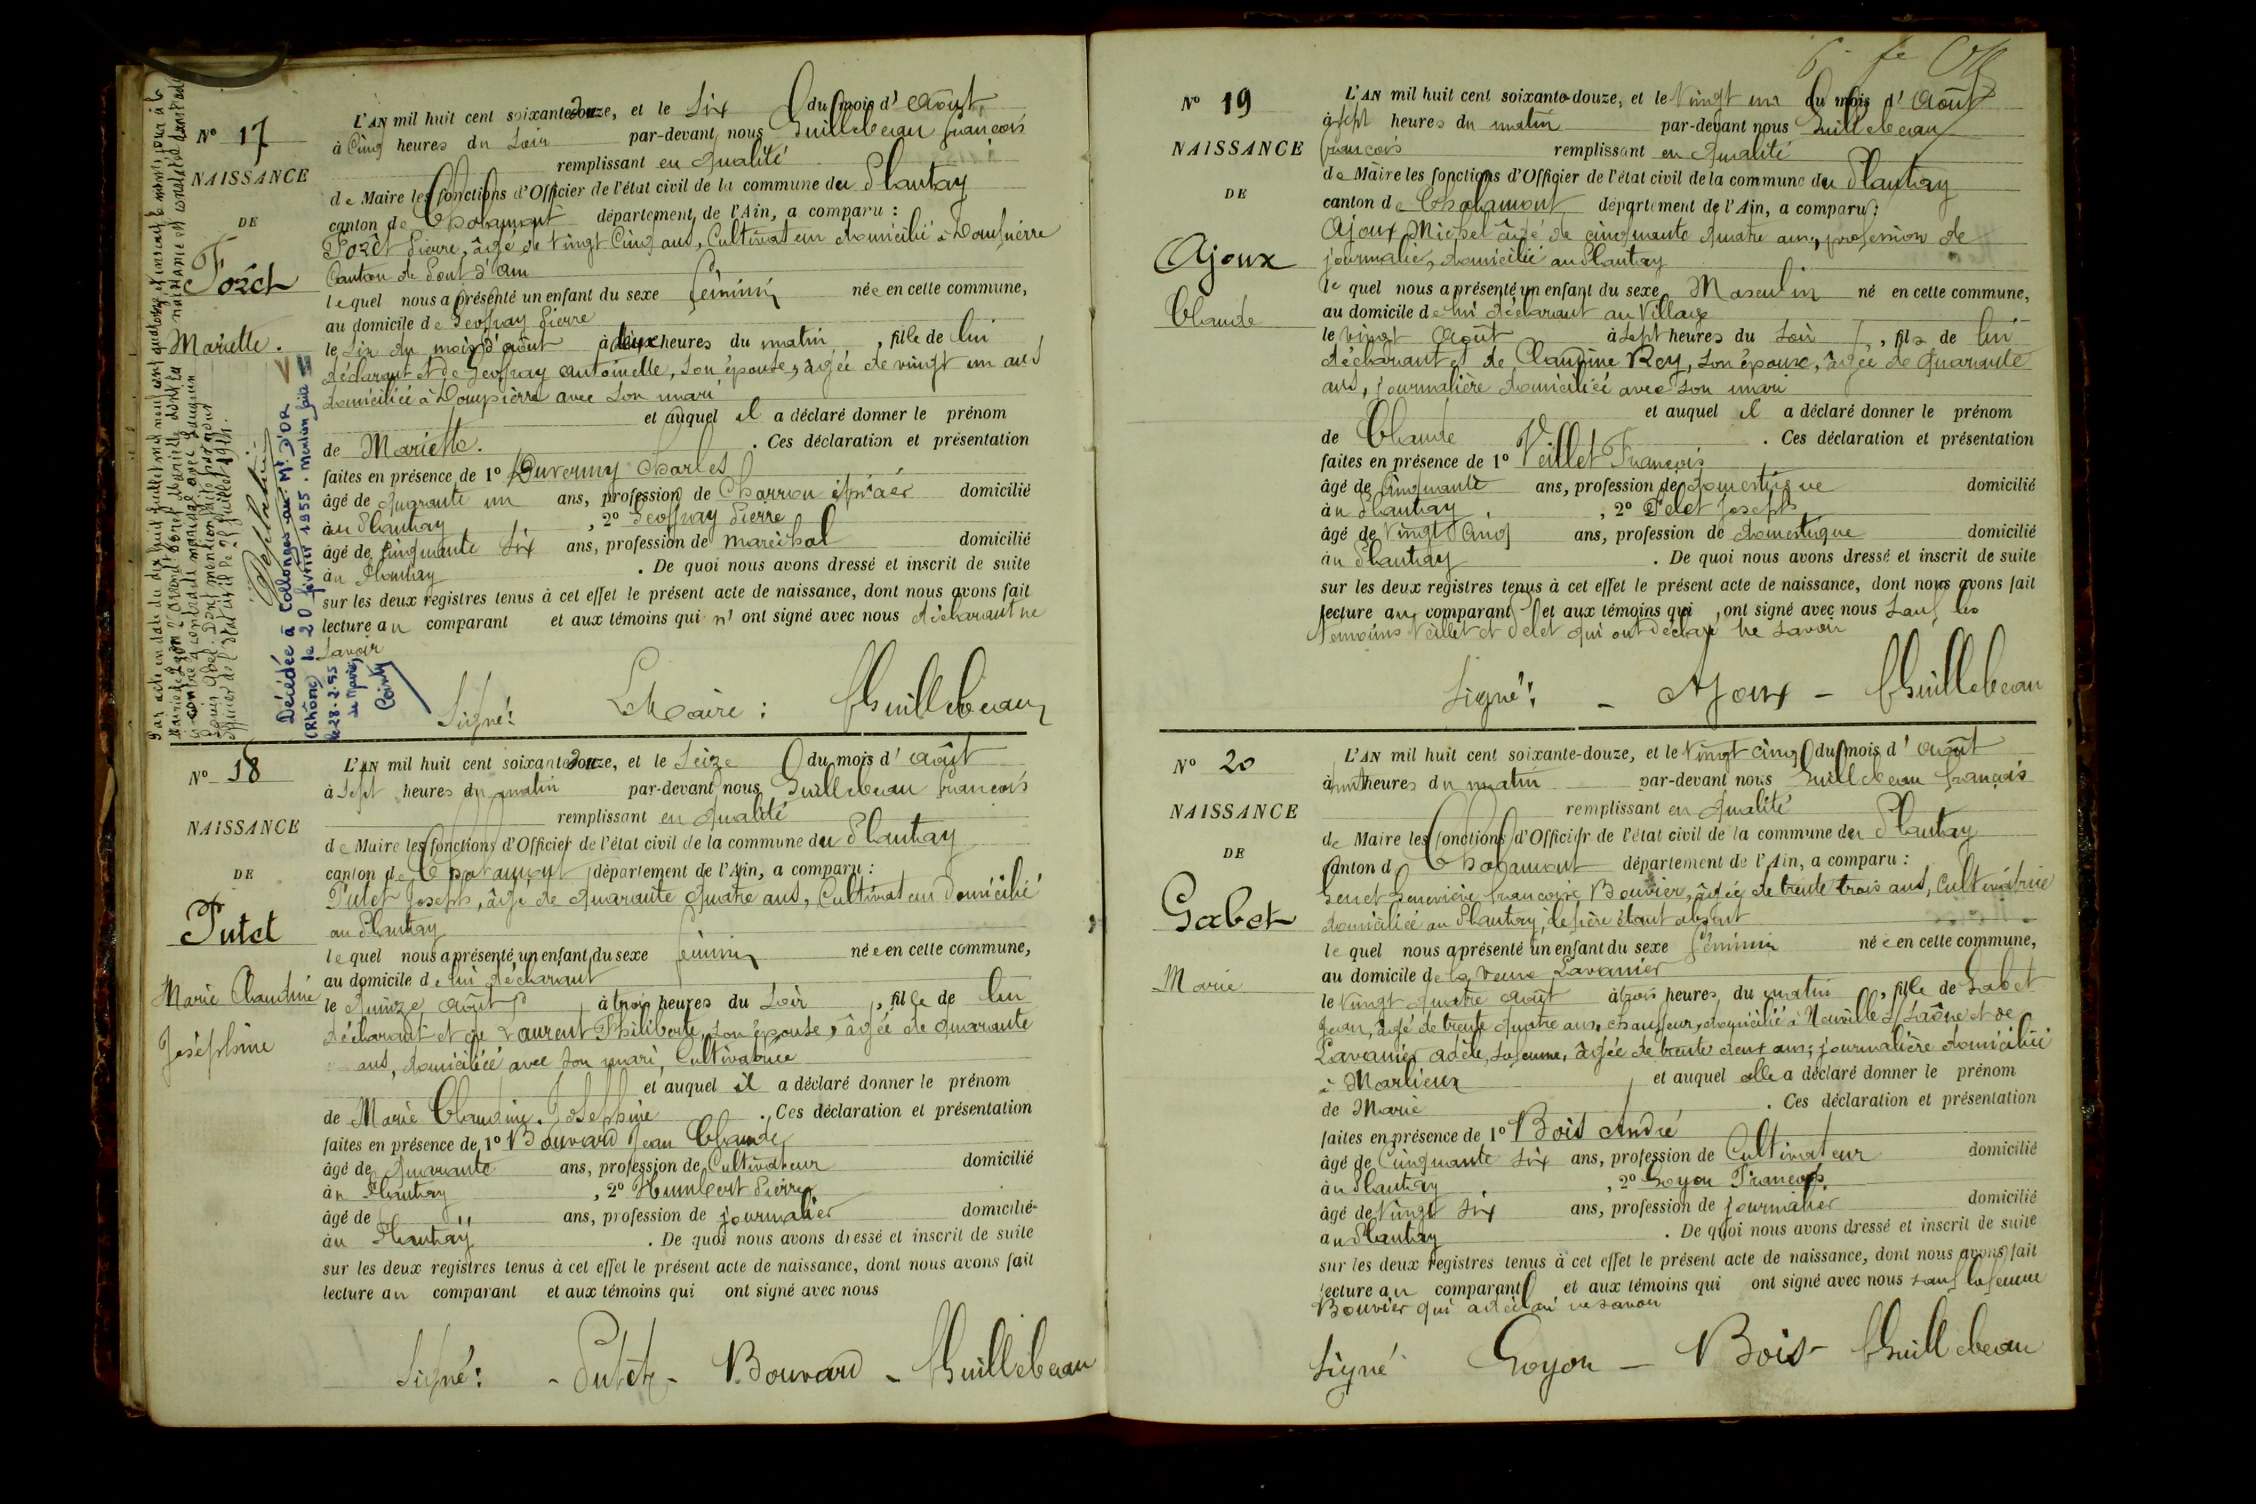 N° 17
NAISSANCE
DE
Forêt
Mariette.
L'AN mil huit cent soixante douze, et le Six du mois d'Août,
à Cinq heures du Soir par-devant nous Guillebeau françois
remplissant en qualité
de Maire les fonctions d'Officier de l'état civil de la commune du Plantay
canton de Chalamont département de l'Ain, a comparu :
Forêt Pierre, âgé de vingt Cinq ans, Cultivateur domicilié à Dompierre
Canton de Pont d'Ain
lequel nous a présenté un enfant du sexe féminin née en cette commune,
au domicile de Geoffray Pierre
le Six du mois d'août à deux heures du matin, fille de lui
déclarant et de Geoffray antoinette, son épouse, âgée de vingt un ans
domiciliée à Dompierre avec son mari
et auquel il a déclaré donner le prénom
de Mariette. . Ces déclaration et présentation
faites en présence de 1° Duvernay Charles
âgé de quarante un ans, profession de Charron domicilié
au Plantay, 2° Geoffray Pierre
âgé de cinquante six ans, profession de maréchal domicilié
au Plantay. De quoi nous avons dressé et inscrit de suite
sur les deux registres tenus à cet effet le présent acte de naissance, dont nous avons fait
lecture au comparant et aux témoins qui n'ont signé avec nous déclarant ne
savoir
Signé: Le Maire : Guillebeau
Par acte en date du dix huit juillet mil neuf cent quatorze,
Décédée à Collonges au Mt D'OR
(Rhône) le 20 février 1955. Mention faite
le 28-2-55
N° 18
NAISSANCE
DE
Putet
Marie Claudine
Joséphine
L'AN mil huit cent soixante douze, et le Seize du mois d'août
à Sept heures du matin par-devant nous Guillebeau françois
remplissant en qualité
de Maire les fonctions d'Officier de l'état civil de la commune du Plantay
canton de Chalamont département de l'Ain, a comparu :
Putet Joseph, âgé de quarante quatre ans, Cultivateur domicilié
au Plantay
lequel nous a présenté un enfant du sexe féminin née en cette commune,
au domicile de lui déclarant
le quinze août à trois heures du Soir, fille de lui
déclarant et de Laurent Philiberte, son épouse, âgée de quarante
ans, domiciliée avec son mari, Cultivatrice
et auquel il a déclaré donner le prénom
de Marie Claudine Joséphine. Ces déclaration et présentation
faites en présence de 1° Bouvard Jean Claude
âgé de quarante ans, profession de Cultivateur domicilié
au Plantay, 2° Humbert Pierre
âgé de ans, profession de journalier domicilié
au Plantay. De quoi nous avons dressé et inscrit de suite
sur les deux registres tenus à cet effet le présent acte de naissance, dont nous avons fait
lecture au comparant et aux témoins qui ont signé avec nous
Signé: - Putet - Bouvard - Guillebeau
N° 19
NAISSANCE
DE
Ajoux
Claude
L'AN mil huit cent soixante-douze, et le Vingt un du mois d'Août
à sept heures du matin par-devant nous Guillebeau
françois remplissant en qualité
de Maire les fonctions d'Officier de l'état civil de la commune du Plantay
canton de Chalamont département de l'Ain, a comparu :
Ajoux Michel âgé de cinquante quatre ans, profession de
journalier, domicilié au Plantay
le quel nous a présenté un enfant du sexe Masculin né en cette commune,
au domicile de lui déclarant au Village
le vingt Août à sept heures du Soir, fils de lui
déclarant et de Claudine Rey, son épouse, âgée de quarante
ans, journalière domiciliée avec son mari
et auquel il a déclaré donner le prénom
de Claude . Ces déclaration et présentation
faites en présence de 1° Veillet François
âgé de cinquante ans, profession de domestique domicilié
au Plantay, 2° Pelet Joseph
âgé de Vingt Cinq ans, profession de domestique domicilié
au Plantay . De quoi nous avons dressé et inscrit de suite
sur les deux registres tenus à cet effet le présent acte de naissance, dont nous avons fait
lecture au comparant et aux témoins qui ont signé avec nous sauf les
témoins Veillet et Pelet qui ont déclaré ne savoir
Signé: - Ajoux - Guillebeau
N° 20
NAISSANCE
DE
Gabet
Marie
L'AN mil huit cent soixante-douze, et le Vingt cinq du mois d'août
à huit heures du matin par-devant nous Guillebeau françois
remplissant en qualité
de Maire les fonctions d'Officier de l'état civil de la commune du Plantay
canton d Chalamont département de l'Ain, a comparu :
Geneviève françoise Bouvier, âgée de trente trois ans, Cultivatrice
domiciliée au Plantay, le père étant absent
le quel nous a présenté un enfant du sexe féminin née en cette commune,
au domicile de la veuve Lavanier
le vingt quatre août à trois heures du matin, fille de Gabet
Jean, âgé de trente quatre ans, chauffeur, domicilié à Neuville s/ Saône et de
Lavanier adèle, sa femme, âgée de trente deux ans, journalière domiciliée
à Marlieux et auquel elle a déclaré donner le prénom
de Marie . Ces déclaration et présentation
faites en présence de 1° Bois André
âgé de Cinquante six ans, profession de Cultivateur domicilié
au Plantay, 2° Goyon François
âgé de Vingt six ans, profession de journalier domicilié
au Plantay . De quoi nous avons dressé et inscrit de suite
sur les deux registres tenus à cet effet le présent acte de naissance, dont nous avons fait
lecture au comparant et aux témoins qui ont signé avec nous sauf la femme
Bouvier qui a déclaré ne savoir
Signé Goyon - Bois - Guillebeau